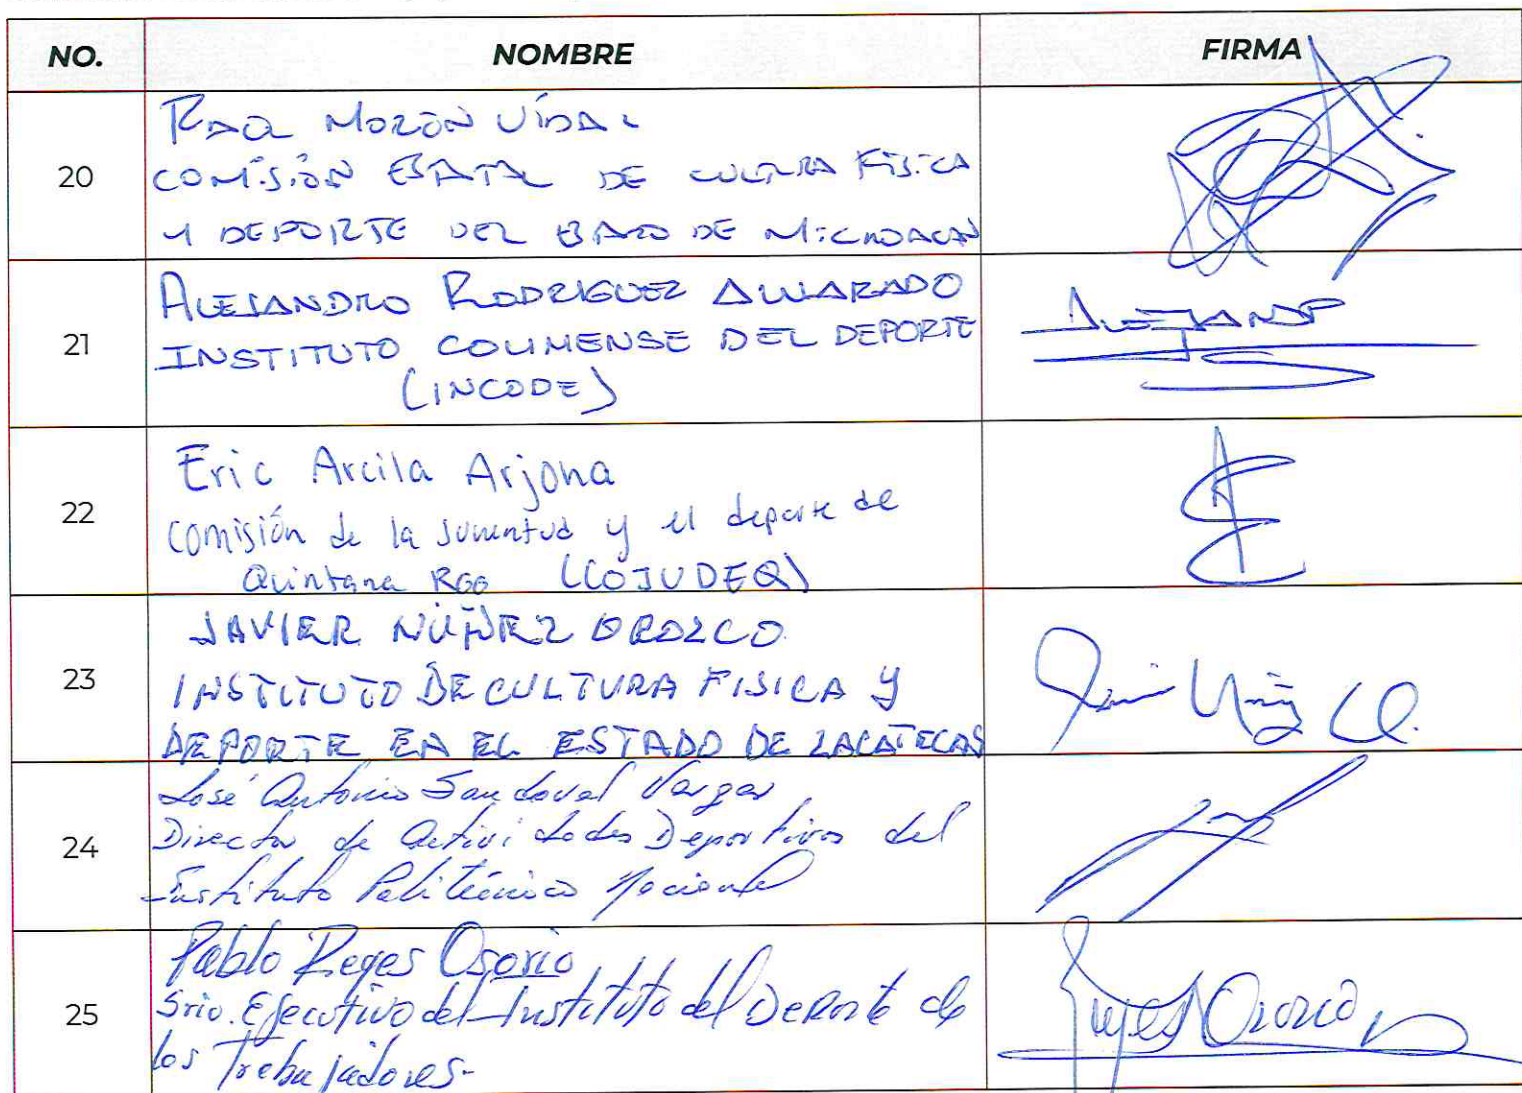 NO. NOMBRE FIRMA
20
RAÚL MORÓN VIDAL
COMISIÓN ESTATAL DE CULTURA FÍSICA
Y DEPORTE DEL ESTADO DE MICHOACAN
21
ALEJANDRO RODRIGUEZ ALVARADO
INSTITUTO COLIMENSE DEL DEPORTE
(INCODE)
ALEJAND
22
Eric Arcila Arjona
Comisión de la Juventud y el deporte de
Quintana Roo (COJUDEQ)
23
JAVIER NÚÑEZ OROZCO
INSTITUTO DE CULTURA FISICA Y
DEPORTE EN EL ESTADO DE ZACATECAS
24
José Antonio Sandoval Vargas
Director de Actividades Deportivas del
Instituto Politécnico Nacional
25
Pablo Reyes Osorio
Srio. Ejecutivo del Instituto del Deporte de
los Trabajadores.
Reyes Osorio